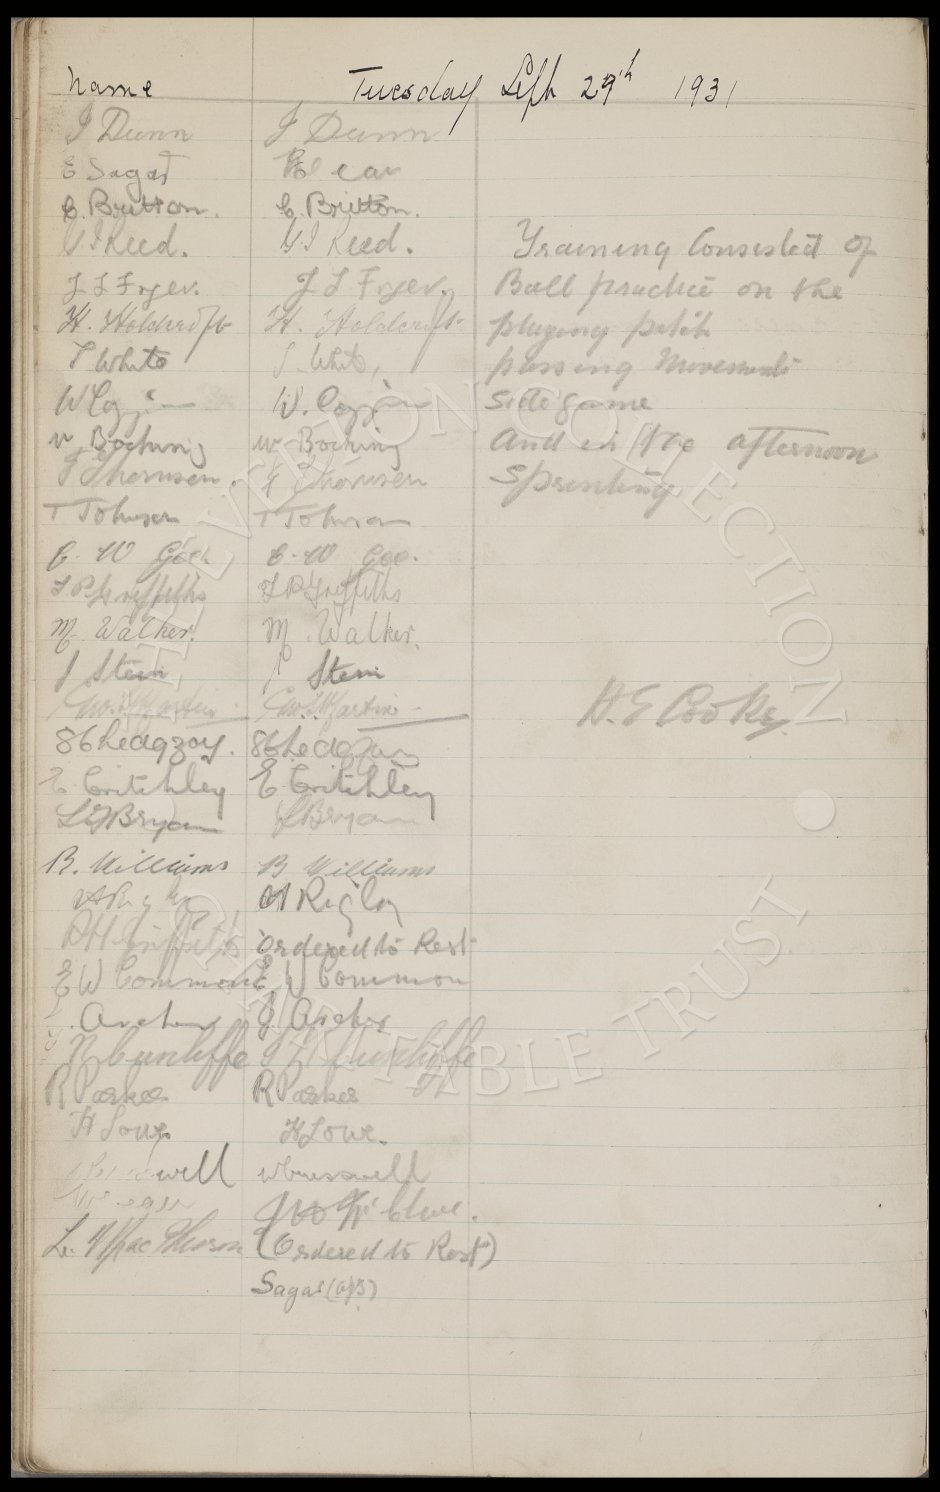 Name Tuesday Sept 29th 1931
J Dunn J Dunn
E Sagar
C. Britton. C. Britton.
G I Reed. G I Reed.
J L Fryer. J L Fryer.
H. Holdcroft H. Holdcroft
T White T. White,
W Coggins W. Coggins
W Bocking W Bocking
J Thomson. J Thomson
T Johnson T Johnson
C. W Gee. C. W Gee.
T P. Griffiths T P Griffiths
M. Walker. M. Walker.
J Stein J Stein
Geo. S Martin Geo. S Martin
S C Chedgzoy. S C Chedgzoy
E Critchley E Critchley
L Bryan L Bryan
B. Williams B Williams
A Rigby A Rigby
P H Griffiths Ordered to Rest
E W Common E W Common
J. Archer J. Archer
Cunliffe Cunliffe
R Parker R Parker
H Lowe H Lowe.
well W Cresswell
Clure.
L. MacPherson (Ordered to Rest)
Sagar (O/S)
Training Consisted of
Ball practice on the
playing pitch
passing Movements
side game
And in the afternoon
Sprinting
H. E Cooke
THE EVERTON COLLECTION
CHARITABLE TRUST